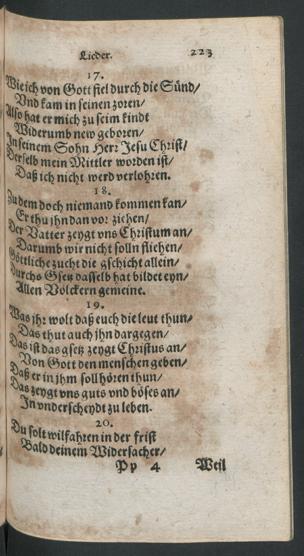 Lieder. 223
17.
Wie ich von Gott fiel durch die Sünd/
Vnd kam in seinen zoren/
Also hat er mich zu seim kindt
Widerumb new geboren/
In seinem Sohn Herr Jesu Christ/
Derselb mein Mittler worden ist/
Daß ich nicht werd verlohren.
18.
Zu dem doch niemand kommen kan/
Er thu jhn dan vor ziehen/
Der Vatter zeygt vns Christum an/
Darumb wir nicht solln fliehen/
Göttliche zucht die gschicht allein/
Durchs Gsetz dasselb hat bildet eyn/
Allen Völckern gemeine.
19.
Was jhr wolt daß euch die leut thun/
Das thut auch jhn dargegen/
Das ist das gsetz zeygt Christus an/
Von Gott den menschen geben/
Daß er in jhm soll hören thun/
Das zeygt vns guts vnd böses an/
In vnderscheydt zu leben.
20.
Du solt wilfahren in der frist
Bald deinem Widersacher/
Pp 4 Weil